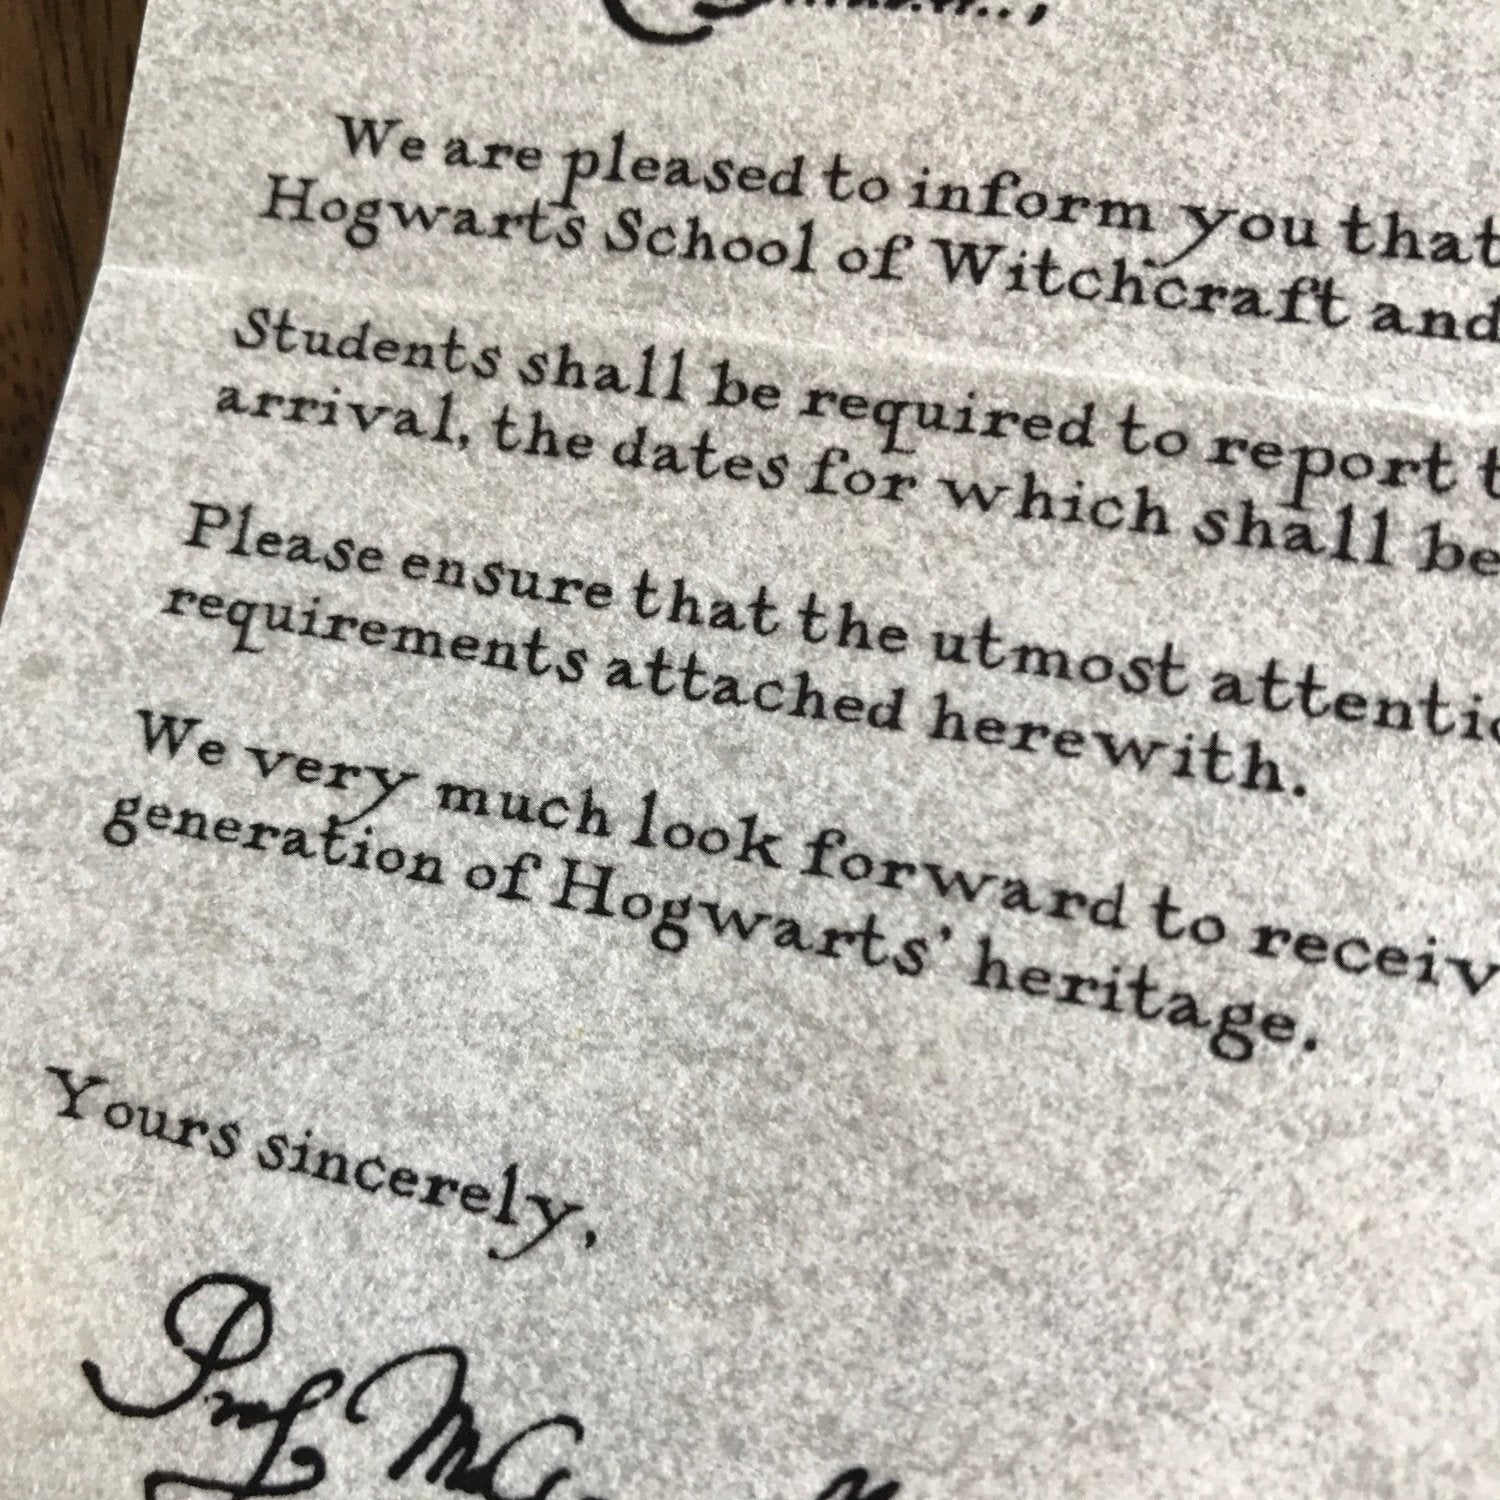 We are pleased to inform you that
Hogwarts School of Witchcraft and
Students shall be required to report
arrival, the dates for which shall be
Please ensure that the utmost
requirements attached herewith.
We very much look forward to
generation of Hogwarts' heritage.
Yours sincerely,
Prof.